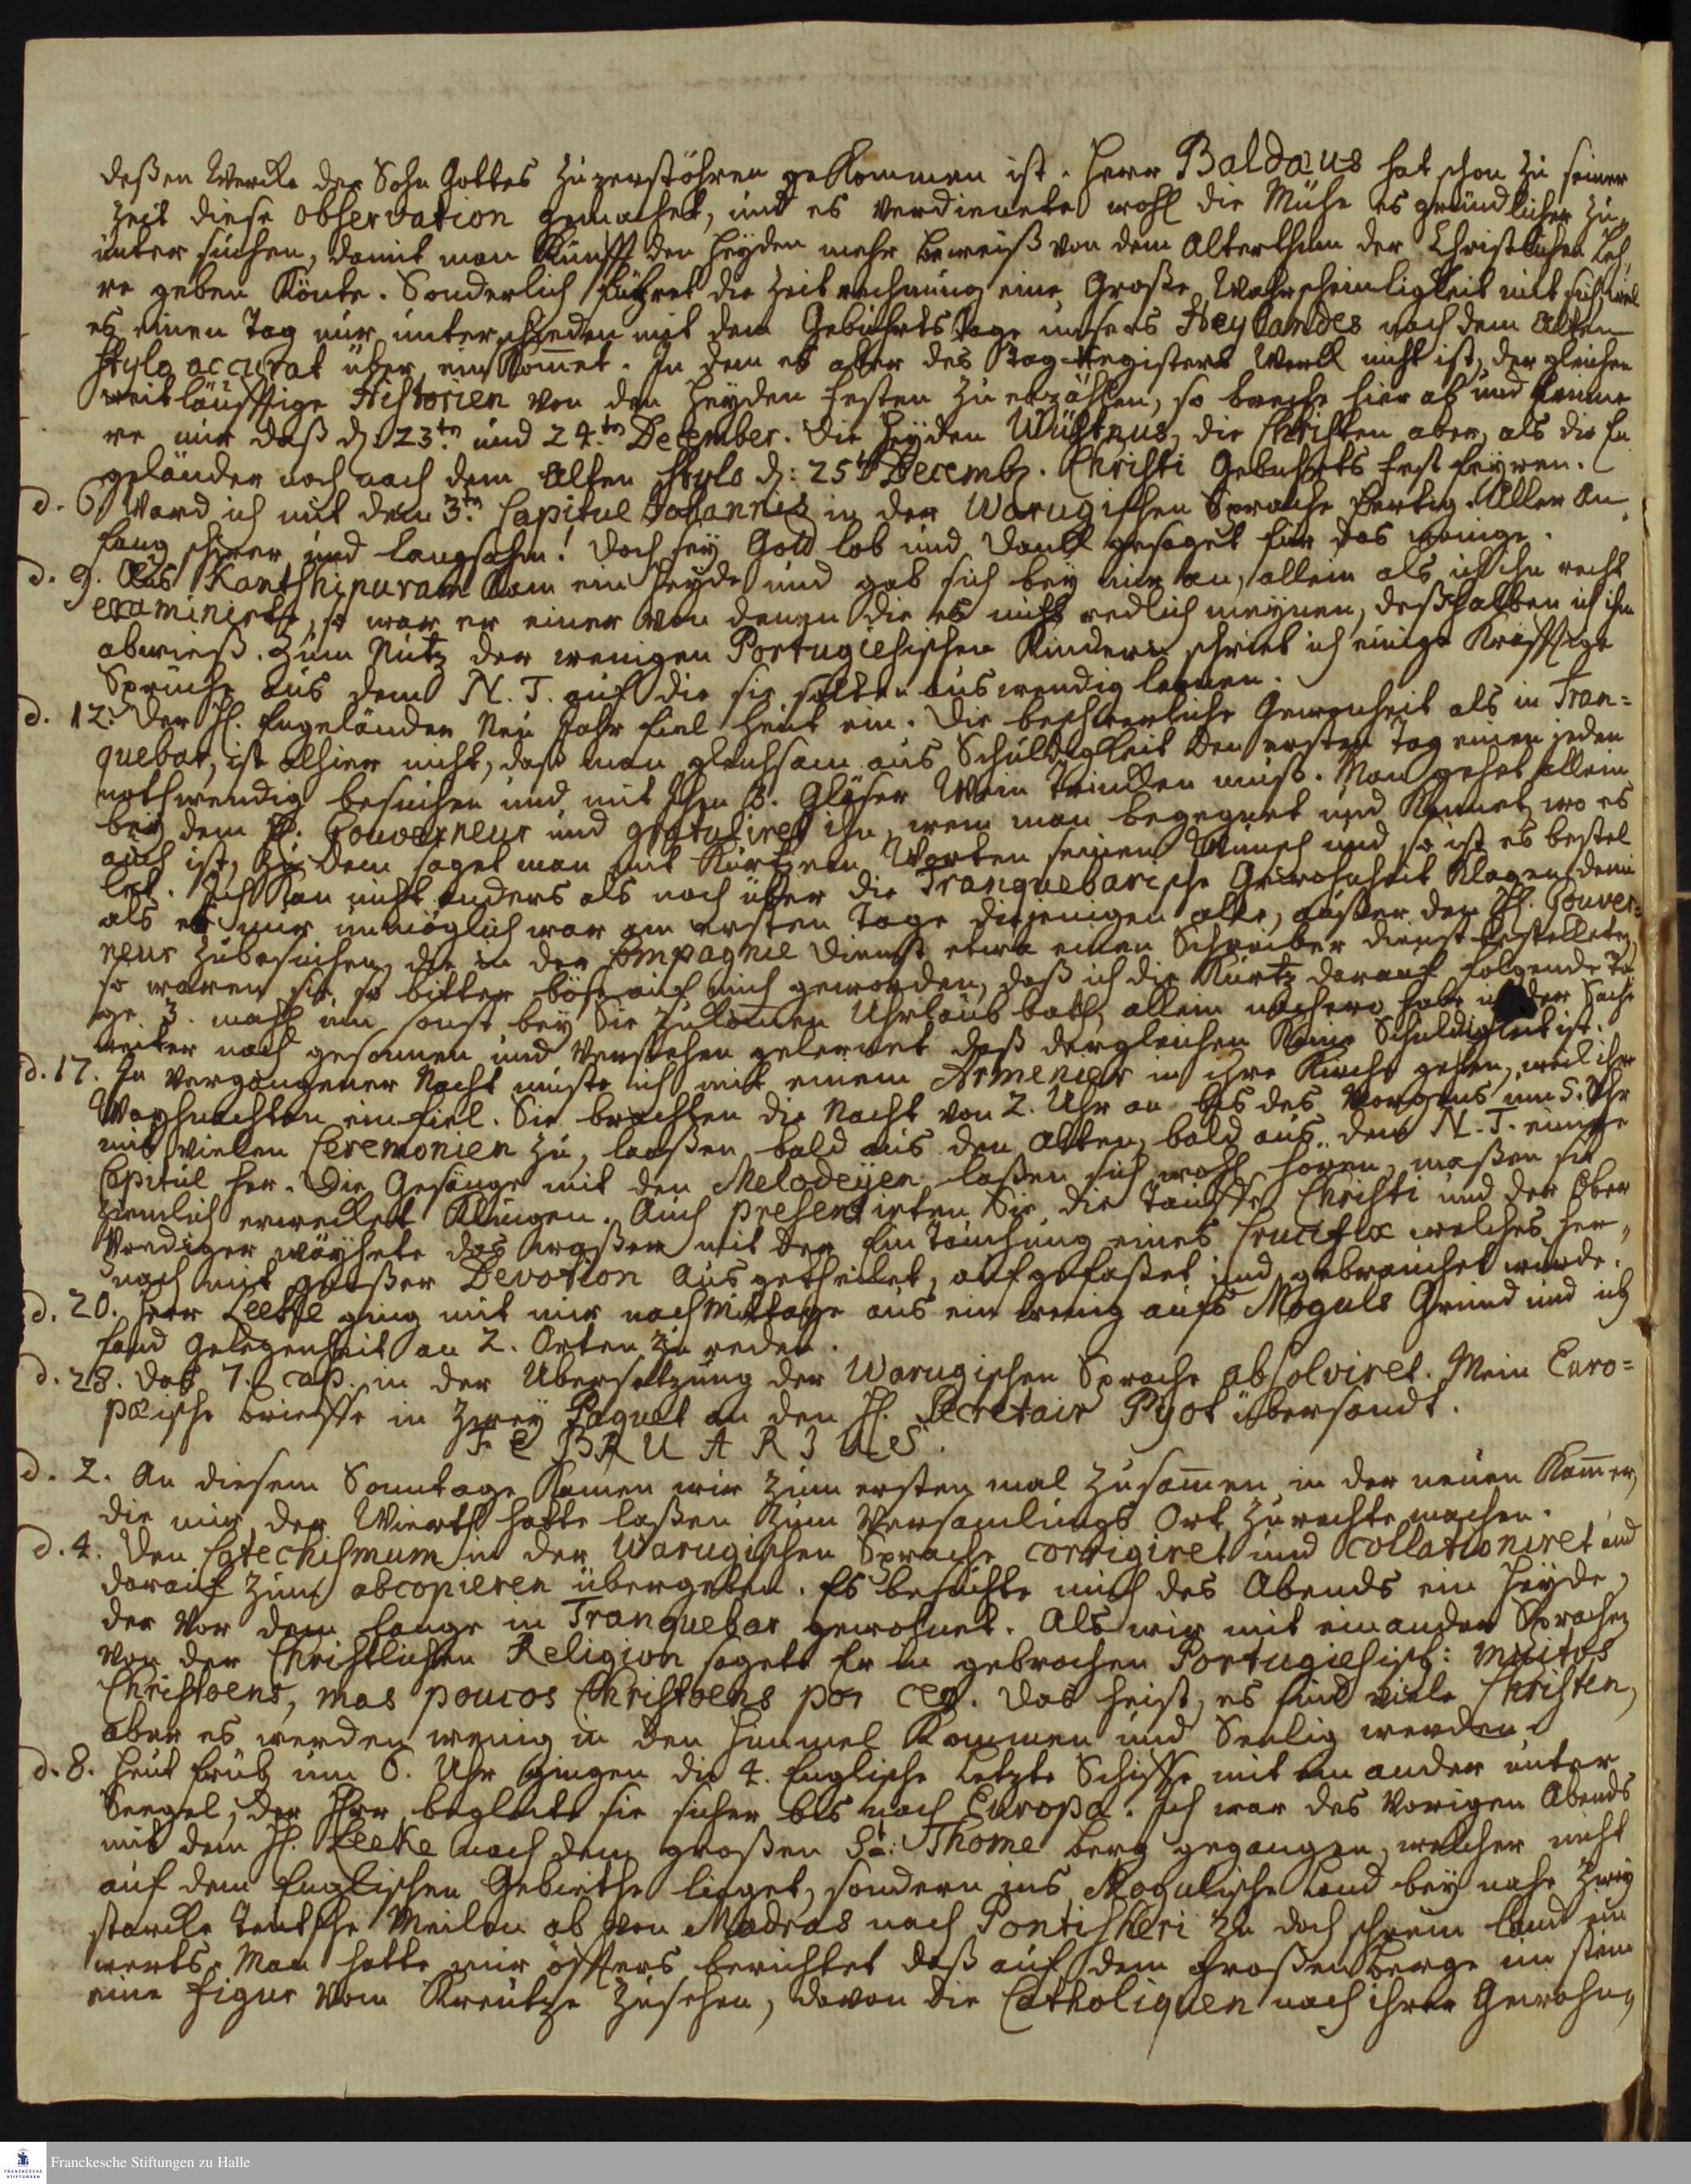 deßen Wercke der Sohn Gottes zuzerstöhren gekommen ist. Herr Baldæus hat schon zu seiner
Zeit diese observation gemachet, und es verdienete wohl die Mühe es gründlicher zu
untersuchen, damit man künfft den Heyden mehr beweiß von dem Alterthum der Christlichen Leh
re geben könte. Sonderlich führet die Zeitrechnung eine Große Wahrscheinligkeit mit sich, weil
es einen Tag nur unterschieden mit dem Gebuhrts Tage unsers Heylandes nach dem Alten
stylo accurat über ein kom̄et. In dem es aber des Tag-Registers Werck nicht ist, dergleichen
weitläufftige Historien von den Heyden festen zu erzählen, so breche hier ab und
re nur daß d. 23.tn und 24.tn December. die Heyden Wüstnus, die Christen aber, als die En
geländer noch nach dem Alten stylo d: 25tn Decemb. Christi Gebuhrts fest feyren.
d. 6. Ward ich mit dem 3.tn Capitul Johannis in der Warugischen Sprache fertig. Aller An
fang schwer und langsahm! doch sey Gott lob und danck gesaget für das wenige.
d. 9. Aus Kantshipuram kam ein Heyde und gab sich bey mir an, allein als ich ihn recht
examinirte, so war er einer von denen die es nicht redlich meynen, deßhalben ich ihn
abwieß. Zum Nutz der wenigen Portugiesischen Kindern schrieb ich einige kräfftige
Sprüche aus dem N. T. auf die sie solten auswendig lernen.
d. 12. Der H. Engeländer Neu Jahr fiel heut ein. Die beschwerliche Gewonheit als in Tran=
quebar, ist alhier nicht, daß man gleichsam aus Schuldigkeit den ersten Tag einen jeden
nothwendig besuchen und mit Ihm 3. Gläser Wein Trincken muß. Man gehet allein
bey dem H. Gouverneur und gratuliret ihn, wem man begegnet und kennet, wo es
auch ist, zu dem saget man mit kurtzen Worten seinen Wunsch und so ist es bestel
let. Ich kan nicht anders als noch über die Tranquebarische Gewohnheit klagen denn
als es mir unmöglich war am ersten Tage diejenigen alle, außer den H. Gouver=
neur zubesuchen, die in der Compagnie dienst etwa einen Schreiber dienst bestelleten,
so waren sie so bitter böß auf mich geworden, daß ich die kurtz darauf folgende Ta
ge 3. mahl um sonst bey Sie zukom̄en Uhrlaub bath, allein nachero habe ich der Sache
weiter nach gesonnen und verstehen gelernet daß dergleichen keine Schuldigkeit ist.
d. 17. In vergangener Nacht muste ich mit einem Armenier in ihre Kirche gehen, weil ihr
Weyhnachten einfiel. Sie brachten die Nacht von 2. Uhr an bis des Morgens um 5. Uhr
mit vielen Ceremonien zu, laaßen bald aus den Alten, bald aus den N. T. einige
Capitul her. Die Gesänge mit den Melodeyen laßen sich wohl hören, maßen sie
ziemlich erwecket klingen. Auch presentirten Sie die Tauffe Christi und der Ober
Prediger wäyhete das waßer mit der Eintauchung eines Crucifix welches her=
nach mit großer Devotion ausgetheilet, aufgefaßet und gebrauchet wurde.
d. 20. Herr Leeke ging mit mir nachmittage aus ein wenig aufs Moguls Grund und ich
fand Gelegenheit an 2. Orten zu reden.
d. 28. Das 7. Cap. in der Übersetzung der Warugischen Sprache absolviret. Mein Euro=
pæische brieffe in zwey Paquet an den H. Secretair Pyot übersandt.
FEBRUARIUS.
d. 2. An diesem Sonntage kamen wir zum ersten mal zusam̄en in der neuen Kam̄er,
die mir der Wierth hatte laßen zum Versamlungs Ort zurechte machen.
d. 4. Den Catechismum in der Warugischen Sprache corrigiret und collationiret und
darauf zum abcopieren übergeben. Es besuchte mich des Abends ein Heyde,
der vor dem lange in Tranquebar gewohnet. Als wir mit einander Sprachen
von der Christlichen Religion sagete Er in gebrochen Portugiesisch: muitos
Christoens, mas poucos Christoens por ceo. Das heist, es sind viele Christen,
aber es werden wenig in den Himmel kommen und Seelig werden.
d. 8. Heut früh um 6. Uhr gingen die 4. Englische letzte Schiffe mit ein ander unter
Seegel, der Herr begleite sie sicher bis nach Europa. Ich war des vorigen Abends
mit dem H. Leeke nach dem großen St: Thome berg gegangen, welcher nicht
auf dem Englischen Gebiethe lieget, sondern ins Mogulische Land bey nahe zwey
starcke Teutsche Meilen ab von Madras nach Pontisheri zu doch schreim Land ein
werts. Man hatte mir öffters berichtet daß auf dem großen berge im stein
eine Figur vom Kreutze zusehen, davon die Catholiquen nach ihrer Gewohn=
Franckesche Stiftungen zu Halle